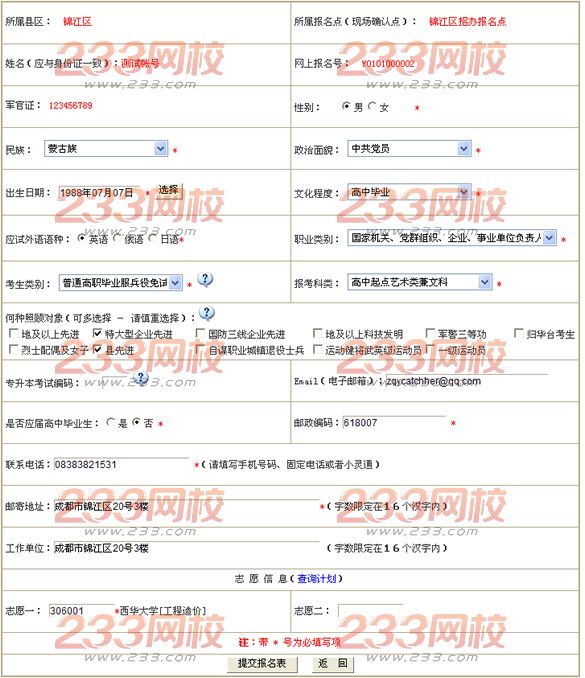 所属县区： 锦江区 所属报名点（现场确认点）： 锦江区招办报名点
姓名（应与身份证一致）：测试帐号 网上报名号： Y0101000002
军官证： 123456789 性别： 男 女 *
民族： 蒙古族 * 政治面貌： 中共党员 *
出生日期： 1988年07月07日 * 选择 文化程度： 高中毕业 *
应试外语语种： 英语 俄语 日语* 职业类别： 国家机关、党群组织、企业、事业单位负责人 *
考生类别： 普通高职毕业服兵役免试 * ? 报考科类： 高中起点艺术类兼文科 *
何种照顾对象（可多选择 － 请慎重选择）： ?
地及以上先进 特大型企业先进 国防三线企业先进 地及以上科技发明 军警三等功 归华台考生
烈士配偶及子女 县先进 自谋职业城镇退役士兵 运动健将武英级运动员 一级运动员
专升本考试编码： ? Email（电子邮箱）：zqycatchher@qq.com
是否应届高中毕业生： 是 否 * 邮政编码：618007 *
联系电话：08383821531 *（请填写手机号码、固定电话或者小灵通）
邮寄地址：成都市锦江区20号3楼 *（字数限定在16个汉字内）
工作单位：成都市锦江区20号3楼 （字数限定在16个汉字内）
志 愿 信 息（查询计划）
志愿一： 306001 *西华大学[工程造价] 志愿二：
注：带 * 号为必填写项
提交报名表 返 回
233网校
www.233.com